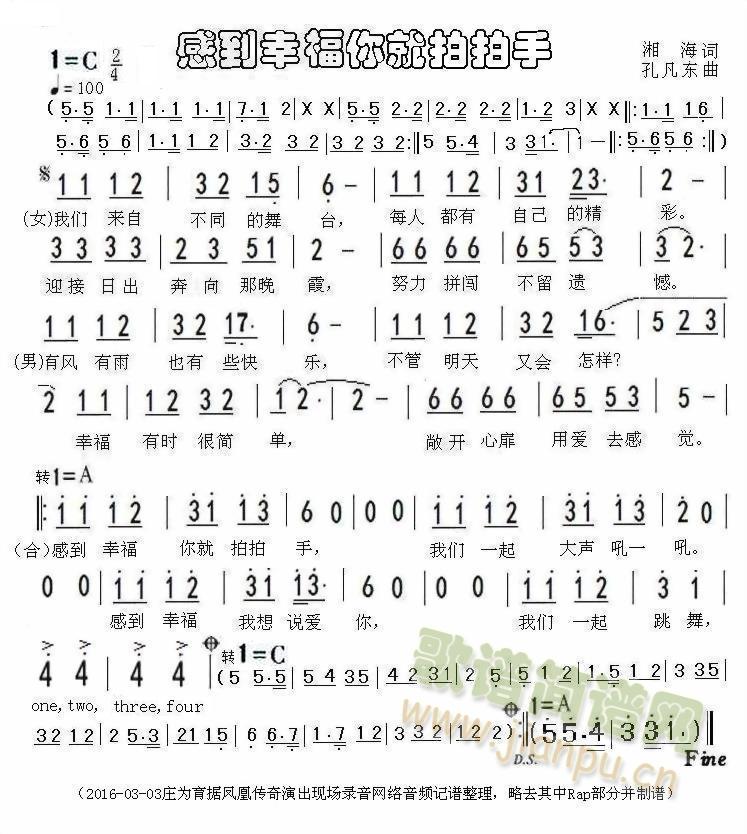 感到幸福你就拍拍手
1=C 2/4
♩=100
湘 海 词
孔凡东 曲
(5·5 1·1 | 1·1 1·1 | 7·1 2 | X X | 5·5 2·2 | 2·2 2·1 | 1·2 3 | X X ‖: 1·1 16 |
5·6 5·6 | 1·1 1 2 | 3·2 3 2 | 3 2 3 2 :‖ 5 5·4 | 3 331 | 1 — ‖: 5·6 5·6 :‖ )
1 1 1 2 | 3 2 1 5 | 6 — | 1 1 1 2 | 3 1 2 3· | 2 — |
(女)我们 来自 不同 的舞 台， 每人 都有 自己 的精 彩。
3 3 3 3 | 2 3 5 1 | 2 — | 6 6 6 6 | 6 5 5 3 | 3 2· |
迎接 日出 奔向 那晚 霞， 努力 拼闯 不留 遗 憾。
1 1 1 2 | 3 2 1 7· | 6 — | 1 1 1 2 | 3 2 1 6· | 5 2 3 |
(男)有风 有雨 也有 些快 乐， 不管 明天 又会 怎样？
2 1 1 | 1 2 3 2 | 1 2· | 2 — | 6 6 6 6 | 6 5 5 3 | 5 — |
幸福 有时 很简 单， 敞开 心扉 用爱 去感 觉。
转1=A
‖: 1 1 1 2 | 3 1 1 3 | 6 0 | 0 0 | 1 1 1 2 | 3 1 1 3 | 2 0 |
(合)感到 幸福 你就 拍拍 手， 我们 一起 大声 吼一 吼。
0 0 | 1 1 1 2 | 3 1 1 3· | 6 0 | 0 0 | 1 1 1 2 | 3 1 |
感到 幸福 我想 说爱 你， 我们 一起 跳 舞，
4 4 | 4 4 | 转1=C (5 5·5 | 5 4 3 5 | 4 3 2 3 1 | 2 2·5 | 5·1 2 | 1·5 1 2 |
one,two, three,four
3 2 1 2 | 3·5 2 | 2 1 1 5 | 6 6·7 | 1·1 3 3 | 2·1 1 2 | 1 2 ) :‖ 1=A (5 5·4 | 3 331· ) ‖
D.S. Fine
歌谱简谱网
www.jianpu.cn
（2016-03-03庄为育据凤凰传奇演出现场录音网络音频记谱整理，略去其中Rap部分并制谱）